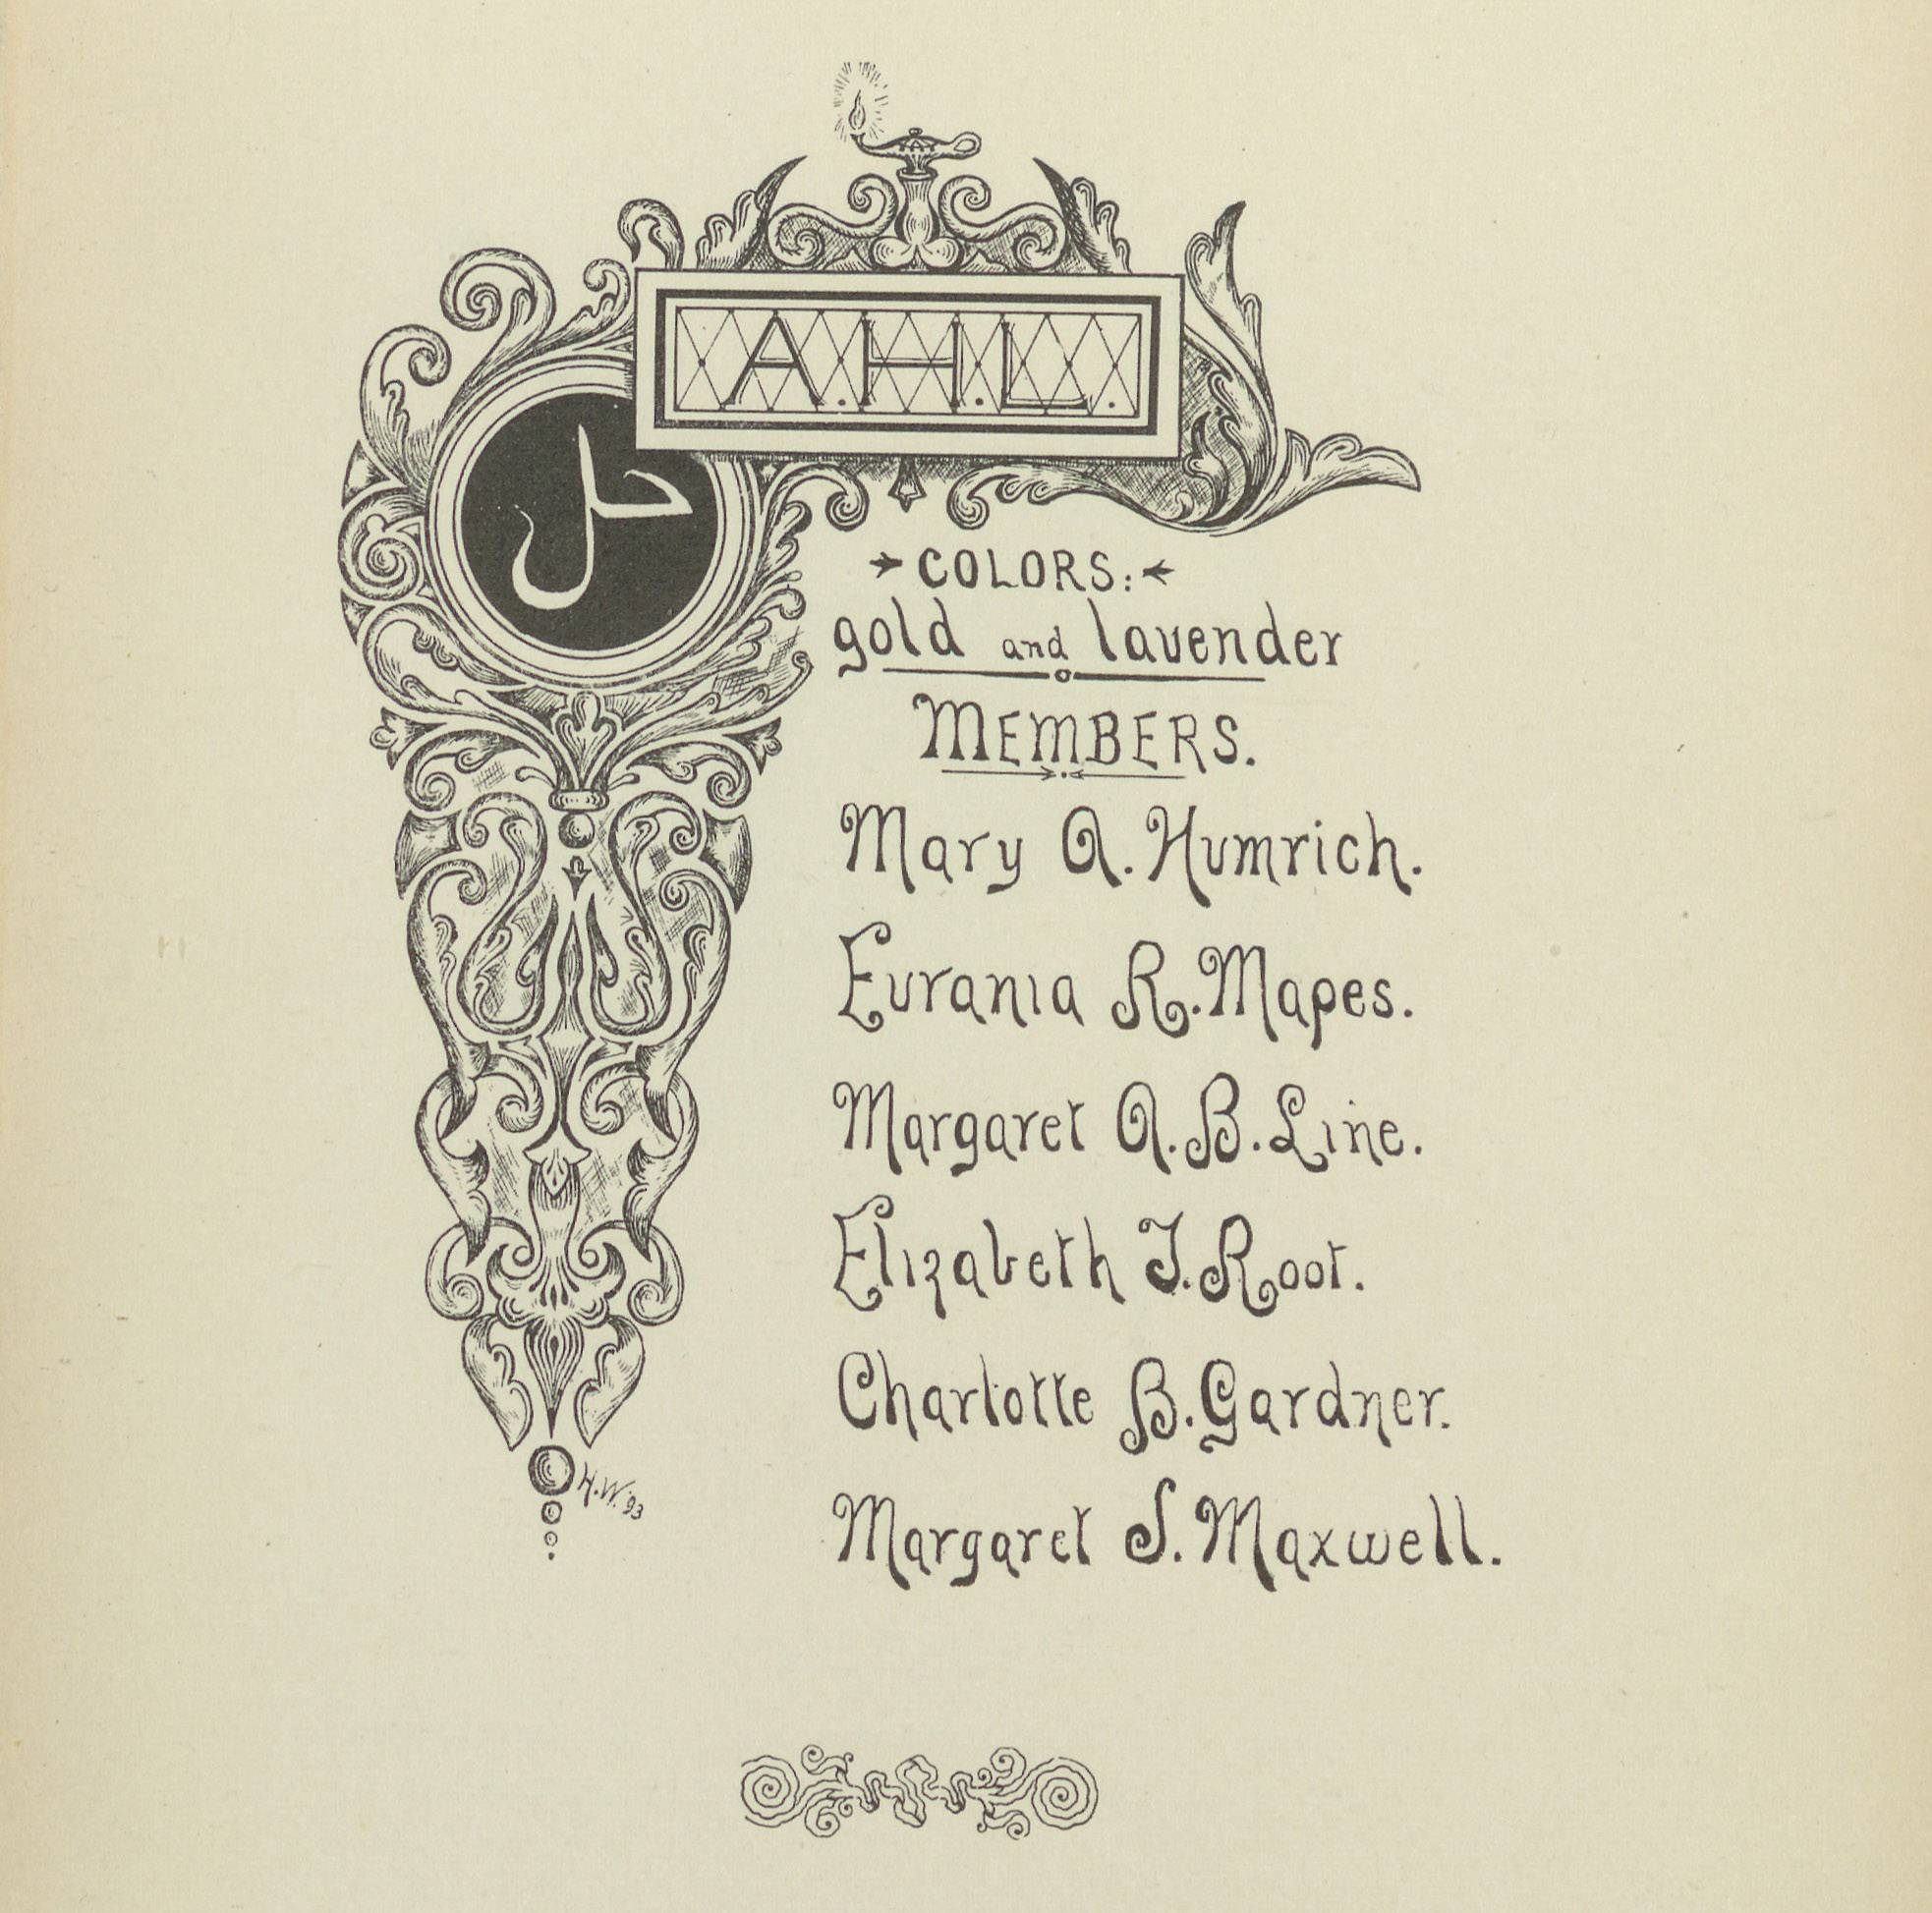 A.H.L.
حل
COLORS:
gold and lavender
MEMBERS.
Mary A. Humrich.
Eurania R. Mapes.
Margaret A. B. Line.
Elizabeth J. Root.
Charlotte B. Gardner.
Margaret S. Maxwell.
H.W. '93